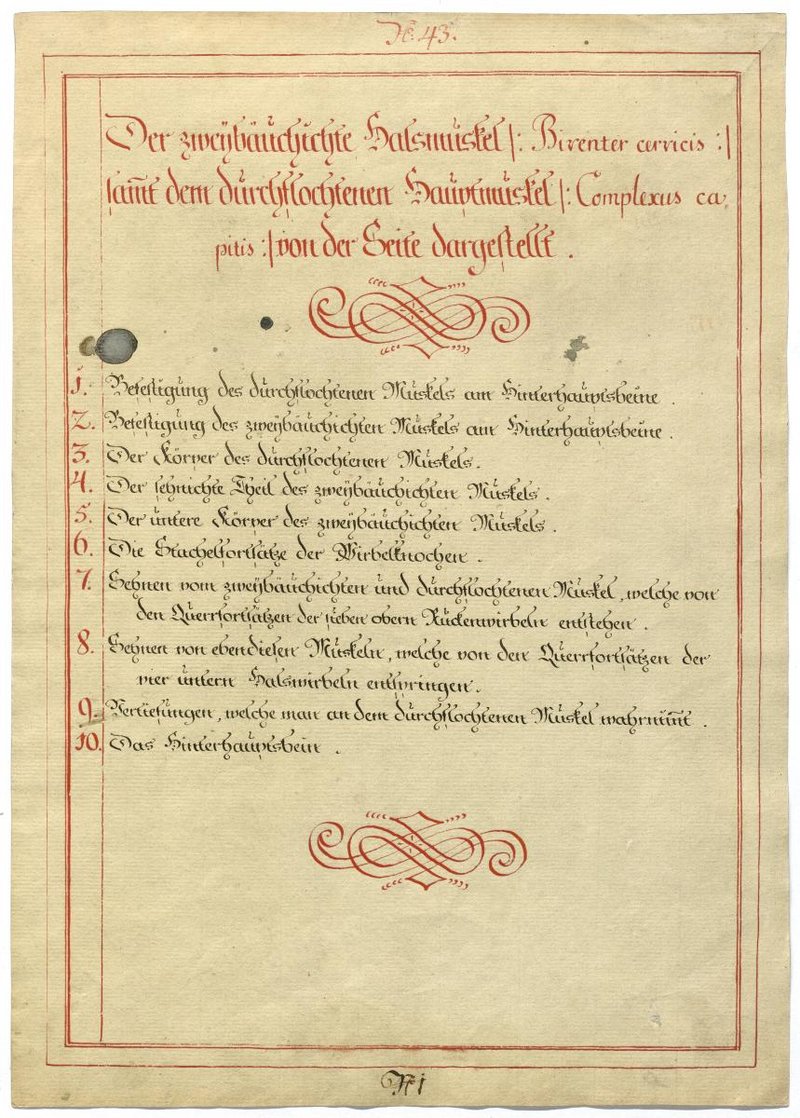 No: 43.
Der zweÿbäuchichte Halsmuskel /: Biventer cervicis :/
sam̅t dem durchflochtenen Hauptmuskel /: Complexus ca-
pitis :/ von der Seite dargestellt .
1. Befestigung des durchflochtenen Muskels am Hinterhauptsbeine .
2. Befestigung des zweÿbäuchichten Muskels am Hinterhauptsbeine .
3. Der Körper des durchflochtenen Muskels .
4. Der sehnichte Theil des zweÿbäuchichten Muskels .
5. Der untere Körper des zweÿbäuchichten Muskels .
6. Die Stachelfortsätze der Wirbelknochen .
7. Sehnen vom zweÿbäuchichten und durchflochtenen Muskel , welche von
den Querfortsätzen der sieben obern Rückenwirbeln entstehen .
8. Sehnen von ebendiesen Muskeln , welche von den Querfortsätzen der
vier untern Halswirbeln entspringen .
9. Vertiefungen , welche man an dem durchflochtenen Muskel wahrnim̅t .
10. Das Hinterhauptsbein .